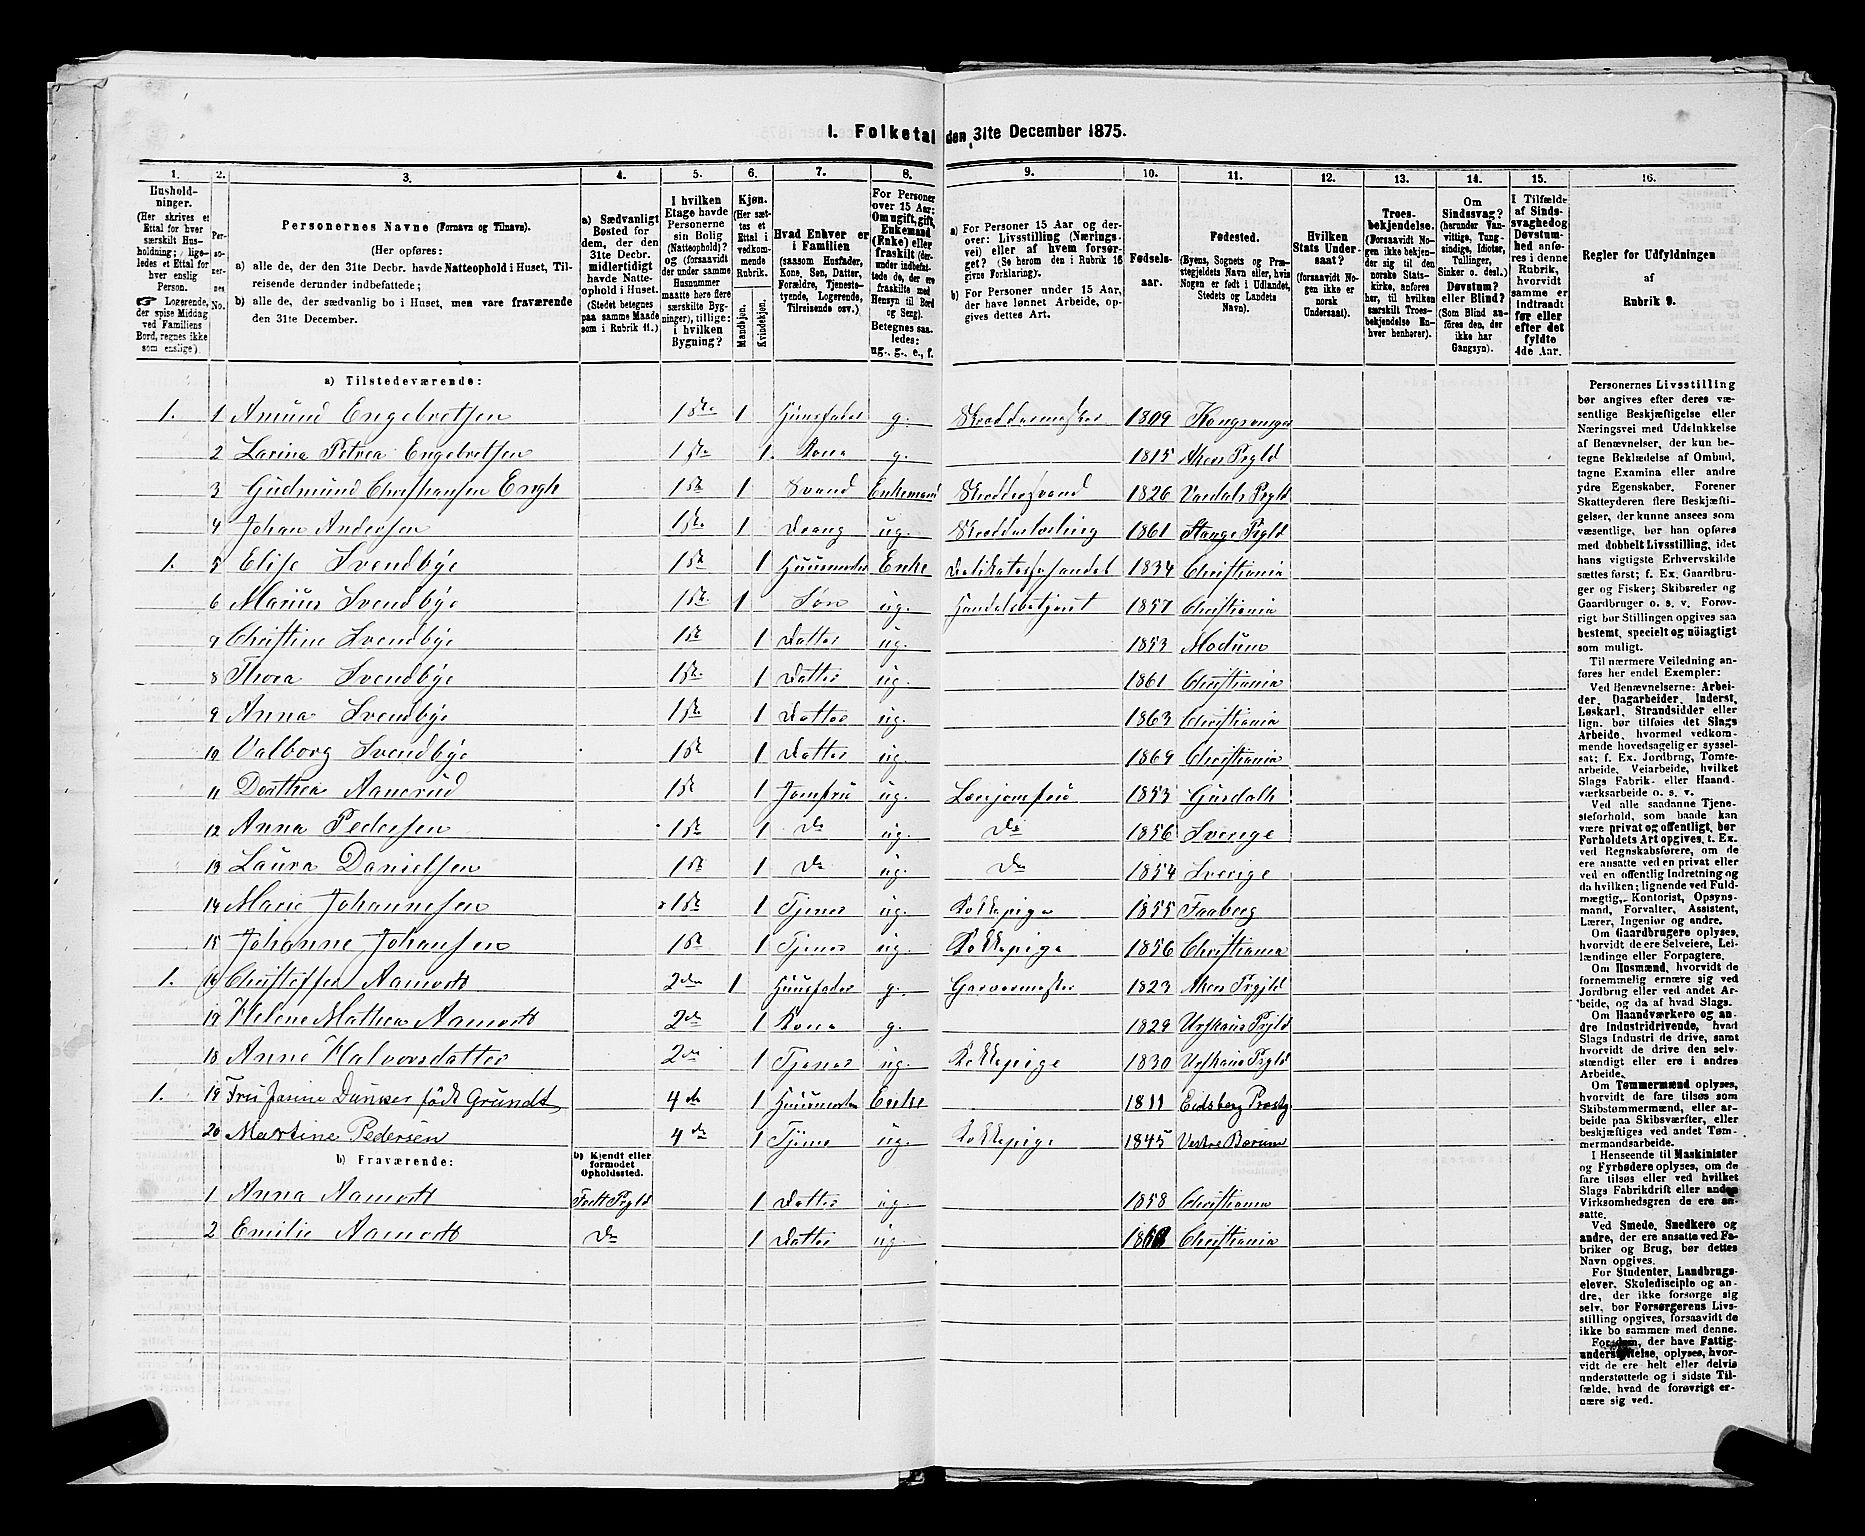 1. Folketal den 31te December 1875.
1. 2. 3. 4. 5. 6. 7. 8. 9. 10. 11. 12. 13. 14. 15. 16.
Husholdninger. (Her skrives et Ettal for hver særskilt Husholdning; ligeledes et Ettal for hver enslig Person. ☞ Logerende, der spise Middag ved Familiens Bord, regnes ikke som enslige).
Personernes No.
Personernes Navne (Fornavn og Tilnavn).
(Her opføres:
a) alle de, der den 31te Decbr. havde Natteophold i Huset, Tilreisende derunder indbefattede;
b) alle de, der sædvanlig bo i Huset, men vare fraværende den 31te December.
a) Sædvanligt Bosted for dem, der den 31te Decbr. midlertidigt havde Natteophold i Huset. (Stedet betegnes paa samme Maade som i Rubrik 11.)
I hvilken Etage havde Personerne sin Bolig (Natteophold)? og (forsaavidt der under samme Husnummer maatte høre flere særskilte Bygninger), tillige: i hvilken Bygning?
Kjøn. (Her sættes et Ettal i vedkommende Rubrik.
Mandkjøn. Kvindekjøn.
Hvad Enhver er i Familien (saasom Husfader, Kone, Søn, Datter, Forældre, Tjenestetyende, Logerende, Tilreisende osv.)
For Personer over 15 Aar: Om ugift, gift, Enkemand (Enke) eller fraskilt (derunder indbefattede de, der ere fraskilte med Hensyn til Bord og Seng). Betegnes saaledes: ug., g., e., f.
a) For Personer 15 Aar og derover: Livsstilling (Næringsvei) eller af hvem forsørget? (Se herom den i Rubrik 16 givne Forklaring).
b) For Personer under 15 Aar, der have lønnet Arbeide, opgives dettes Art.
Fødselsaar.
Fødested. (Byens, Sognets og Præstegjeldets Navn eller, hvis Nogen er født i Udlandet, Stedets og Landets Navn).
Hvilken Stats Undersaat? (forsaavidt Nogen ikke er norsk Undersaat).
Troesbekjendelse. (Forsaavidt Nogen ikke bekjender sig til den norske Statskirke, anføres her, til hvilken særskilt Troesbekjendelse Enhver henhører).
Om Sindssvag? (herunder Vanvittige, Tungsindige, Idioter, Tullinger, Sinker o. desl.) Døvstum? eller Blind? (Som Blind anføres den, der ikke har Gangsyn).
I Tilfælde af Sindssvaghed og Døvstumhed anføres i denne Rubrik, hvorvidt samme er indtraadt før eller efter det fyldte 4de Aar.
Regler for Udfyldningen af Rubrik 9.
a) Tilstedeværende:
1. 1 Amund Engebretsen 1ste 1 Huusfader g. Skræddermester 1809 Kongsvinger
2 Larina Petrea Engebretsen 1ste 1. Kone g. 1815 Akers Prgld
3 Gudmund Christiansen Engh 1ste 1 Svend Enkemand Skræddersvend 1826 Vardals Prgld
4 Johan Andersen 1ste 1 Dreng ug. Skrædderlærling 1861 Stange Prgld
1. 5 Elise Svendbye 1ste 1 Huusmoder Enke Delikatessehandel 1834 Christiania
6 Marius Svendbye 1ste 1 Søn ug. Handelsbetjent 1857 Christiania
7 Christine Svendbye 1ste 1 Datter ug. 1853 Modum
8 Thora Svendbye 1ste 1 Datter ug. 1861 Christiania
9 Anna Svendbye 1ste 1 Datter ug. 1863 Christiania
10 Valborg Svendbye 1ste 1 Datter ug 1869 Christiania
11 Dorthea Aanerud 1ste 1 Jomfru ug. 1853
12 Anna Pedersen 1ste 1 Do ug. Do 1856 Sverige
13 Laura Danielsen 1ste 1 Do ug. Do 1854 Sverige
14 Marie Johannesen 1ste 1 Tjener ug. Kokkepige 1855 Faaberg
15 Johanne Johansen 1ste 1 Tjener ug. Kokkepige 1856 Christiania
1. 16 Christoffer Aamodt 2den 1 Huusfader g. Garvermester 1823 Akers Prgjld
17 Helene Mathea Aamodt 2den 1 Kone g. 1829 Urskaus Prjld
18 Anne Halvorsdatter 2den 1 Tjener ug. Kokkepige 1830 Urskaus Prgld
1. 19 Fru Janine Dunker født Grundt 4de 1 Huusmoder Enke 1811 Eidsberg Præstg
20 Martine Pedersen 4de 1 Tjene ug. Kokkepige 1845 Vestre Bærum
b) Fraværende: b) Kjendt eller formodet Opholdssted.
1 Anna Aamodt Prgld 1 Datter ug. 1858 Christiania
2 Emilie Aamodt Do 1 Datter ug. Christiania
Personernes Livsstilling
bør angives efter deres væ-
sentlige Beskjæftigelse eller
Næringsvei med Udelukkelse
af Benævnelser, der kun be-
tegne Beklædelse af Ombud,
tagne Examina eller andre
ydre Egenskaber. Forener
Skatteyderen flere Beskjæfti-
gelser, der kunne ansees som
væsentlige, bør han opføres
med dobbelt Livsstilling, idet
hans vigtigste Erhvervskilde
sættes først; f. Ex. Gaardbru-
ger og Fisker; Skibsreder og
Gaardbruger o. s. v. Forøv-
rigt bør Stillingen opgives saa
bestemt, specielt og nøiagtigt
som muligt.
Til nærmere Veiledning an-
føres her endel Exempler:
Ved Benævnelserne: Arbei-
der, Dagarbeider, Inderst,
Løskarl, Strandsidder eller
lign. bør tilføies det Slags
Arbeide, hvormed vedkom-
mende hovedsagelig er syssel-
sat; f. Ex. Jordbrug, Tomte-
arbeide, Veiarbeide, hvilket
Slags Fabrik- eller Haand-
værksarbeide o. s. v.
Ved alle saadanne Tjene-
steforhold, som baade kan
være privat og offentligt, bør
Forholdets Art opgives, t. Ex.
ved Regnskabsførere, om de
ere ansatte ved en privat eller
ved en offentlig Indretning og
da hvilken; lignende ved Fuld-
mægtig, Kontorist, Opsyns-
mand, Forvalter, Assistent,
Lærer, Ingeniør og andre.
Om Gaardbrugere oplyses,
hvorvidt de ere Selveiere, Lei-
lændinge eller Forpagtere.
Om Husmænd, hvorvidt de
fornemmelig ernære sig ved
Jordbrug eller ved andet Ar-
beide, og da af hvad Slags.
Om Haandværkere og an-
dre Industridrivende, hvad
Slags Industri de drive, samt
hvorvidt de drive den selv-
stændigt eller ere i andres
Arbeide.
Om Tømmermænd oplyses,
hvorvidt de fare tilsøs som
Skibstømmermænd, eller ar-
beide paa Skibsværfter, eller
beskjæftiges ved andet Tøm-
mermandsarbeide.
I Henseende til Maskinister
og Fyrbødere oplyses, om de
fare tilsøs eller ved hvilket
Slags Fabrikdrift eller anden
Virksomhedsgren de ere an-
satte.
Ved Smede, Snedkere og
andre, der ere ansatte ved Fa-
briker og Brug, bør dettes
Navn opgives.
For Studenter, Landbrugs-
elever, Skoledisciple og an-
dre, der ikke forsørge sig
selv, bør Forsørgerens Livs-
stilling opgives, forsaavidt de
ikke bo sammen med denne.
For dem, der have Fattig-
understøttelse, oplyses, hvor-
vidt de ere helt eller delvis
understøttede og i sidste Til-
fælde, hvad de forøvrigt er-
nære sig ved.